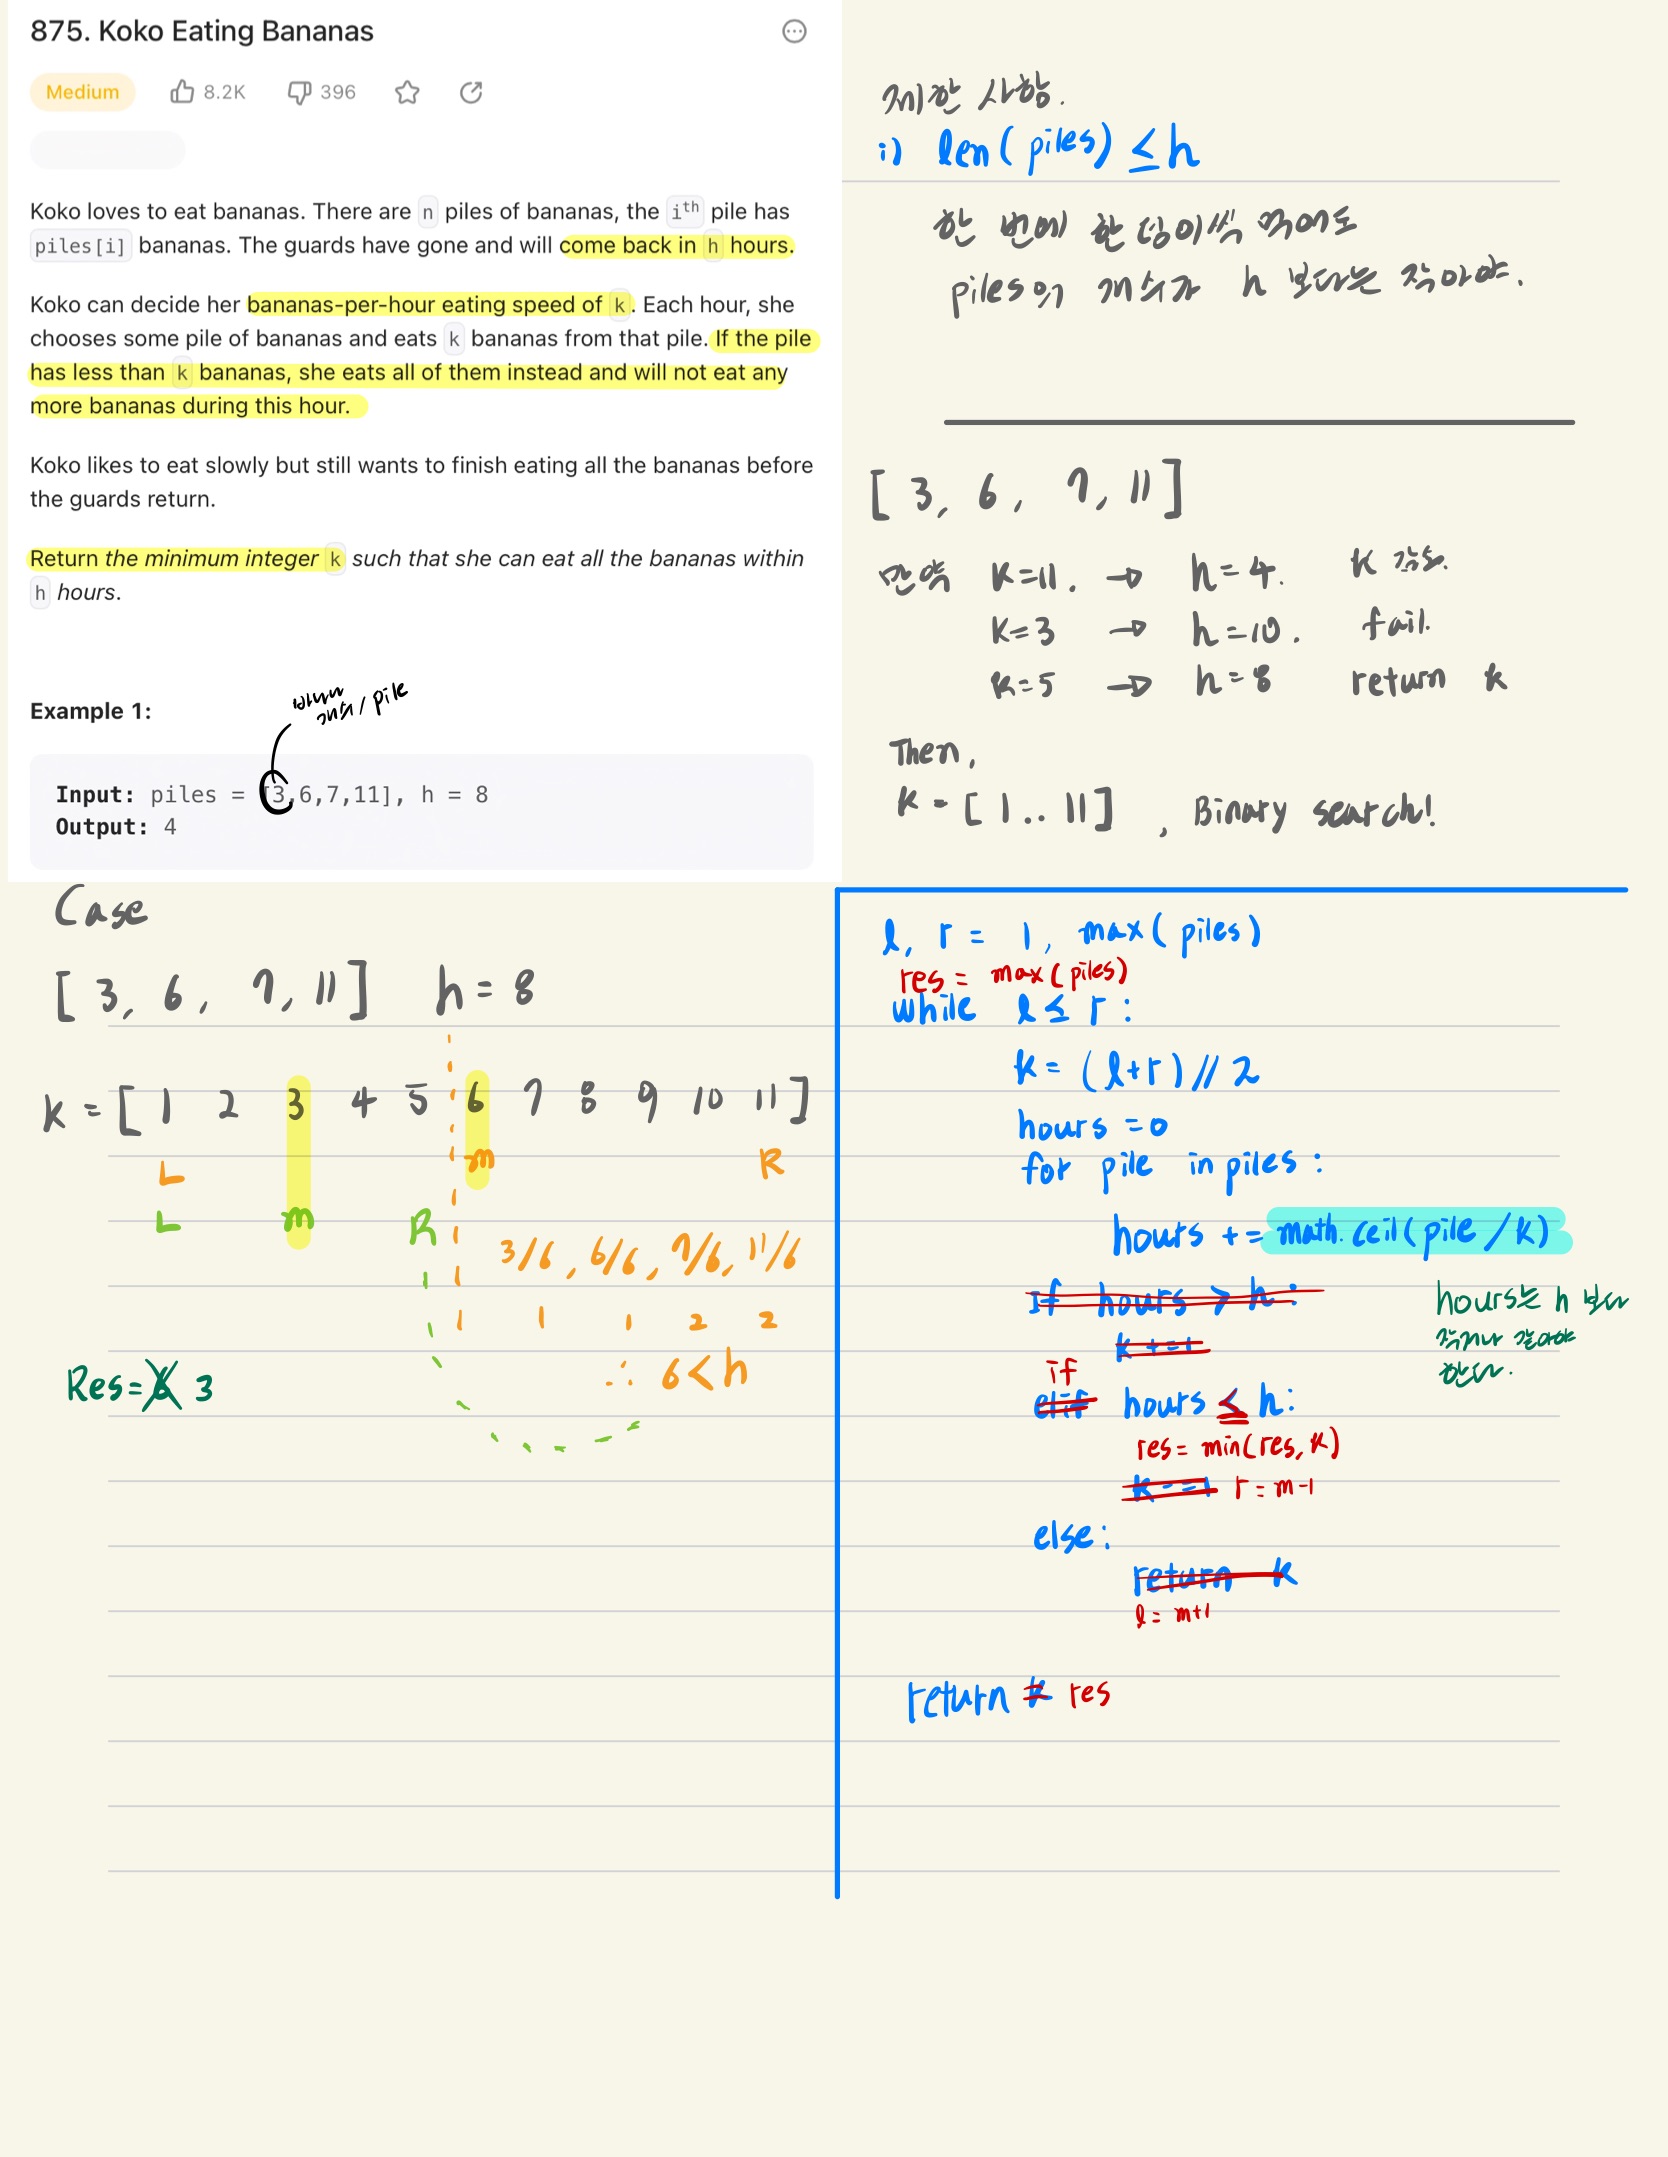 875. Koko Eating Bananas
Medium 8.2K 396
Koko loves to eat bananas. There are n piles of bananas, the ith pile has
piles[i] bananas. The guards have gone and will come back in h hours.
Koko can decide her bananas-per-hour eating speed of k. Each hour, she
chooses some pile of bananas and eats k bananas from that pile. If the pile
has less than k bananas, she eats all of them instead and will not eat any
more bananas during this hour.
Koko likes to eat slowly but still wants to finish eating all the bananas before
the guards return.
Return the minimum integer k such that she can eat all the bananas within
h hours.
바나나
개수/pile
Example 1:
Input: piles = [3,6,7,11], h = 8
Output: 4
제한 사항.
i) len(piles) ≤ h
한 번에 한 덩이씩 먹어도
piles의 개수가 h 보다는 작아야.
[3, 6, 7, 11]
만약 K=11. → h=4. K 감소.
K=3 → h=10. fail.
K=5 → h=8 return k
Then,
K = [1..11], Binary search!
Case
[3, 6, 7, 11] h = 8
K = [1 2 3 4 5 6 7 8 9 10 11]
L m R
L m R
3/6, 6/6, 7/6, 11/6
1 1 2 2
∴ 6 < h
Res = 6 3
l, r = 1, max(piles)
res = max(piles)
while l ≤ r:
k = (l+r)//2
hours = 0
for pile in piles:
hours += math.ceil(pile/k)
if hours > h:
k += 1
hours는 h 보다
작거나 같아야
한다.
if
elif hours ≤ h:
res = min(res, k)
k -= 1 r = m-1
else:
return k
l = m+1
return k res